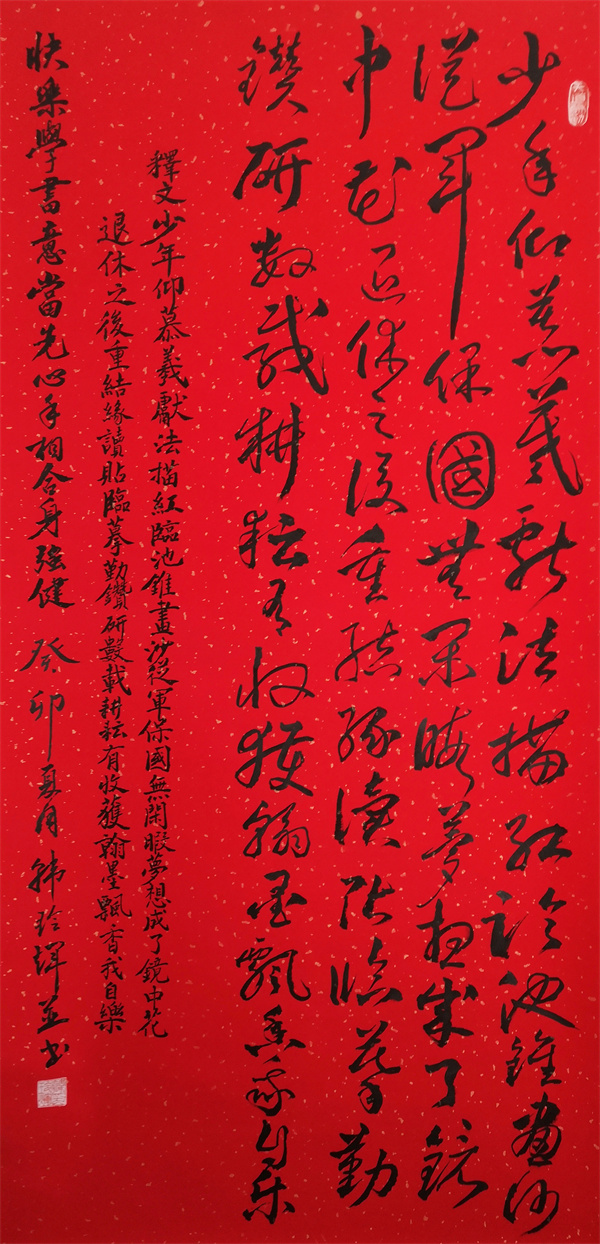 少年仰慕羲獻法描紅臨池錐畫沙
從軍保國無閑暇夢想成了鏡
中花退休之後重結緣讀貼臨摹勤
鑽研數載耕耘有收獲翰墨飄香我自樂
釋文少年仰慕羲獻法描紅臨池錐畫沙從軍保國無閑暇夢想成了鏡中花
退休之後重結緣讀貼臨摹勤鑽研數載耕耘有收獲翰墨飄香我自樂
快樂學書意當先心手相合身強健 癸卯夏月韩玲輝並书